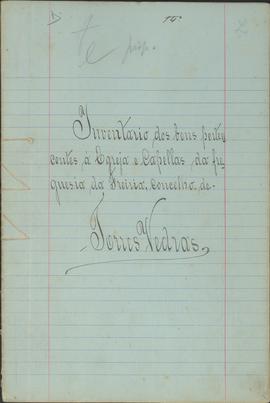 14
Inventario dos bens perten
centes, a Egreja e Capellas da fre
guesia da Freiria, concelho de
Torres Vedras